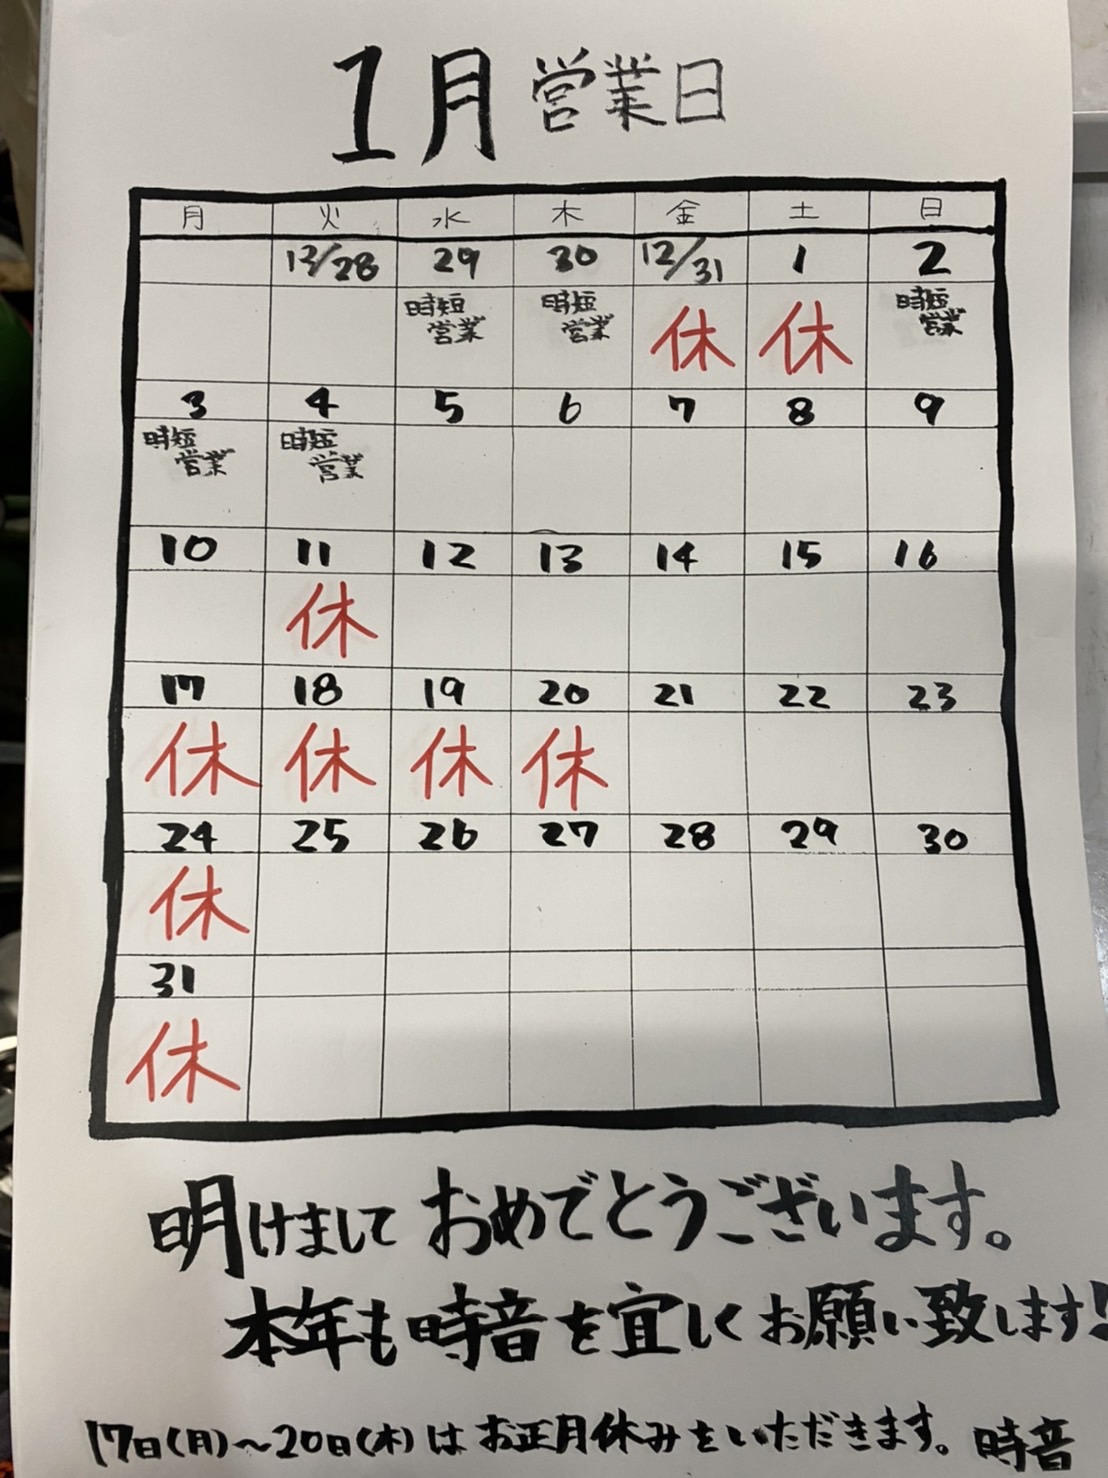 1月 営業日
月 火 水 木 金 土 日
12/28 29 30 12/31 1 2
時短営業 時短営業 休 休 時短営業
3 4 5 6 7 8 9
時短営業 時短営業
10 11 12 13 14 15 16
休
17 18 19 20 21 22 23
休 休 休 休
24 25 26 27 28 29 30
休
31
休
明けまして おめでとうございます。
本年も時音を宜しくお願い致します!
17日(月)~20日(木)はお正月休みをいただきます。 時音